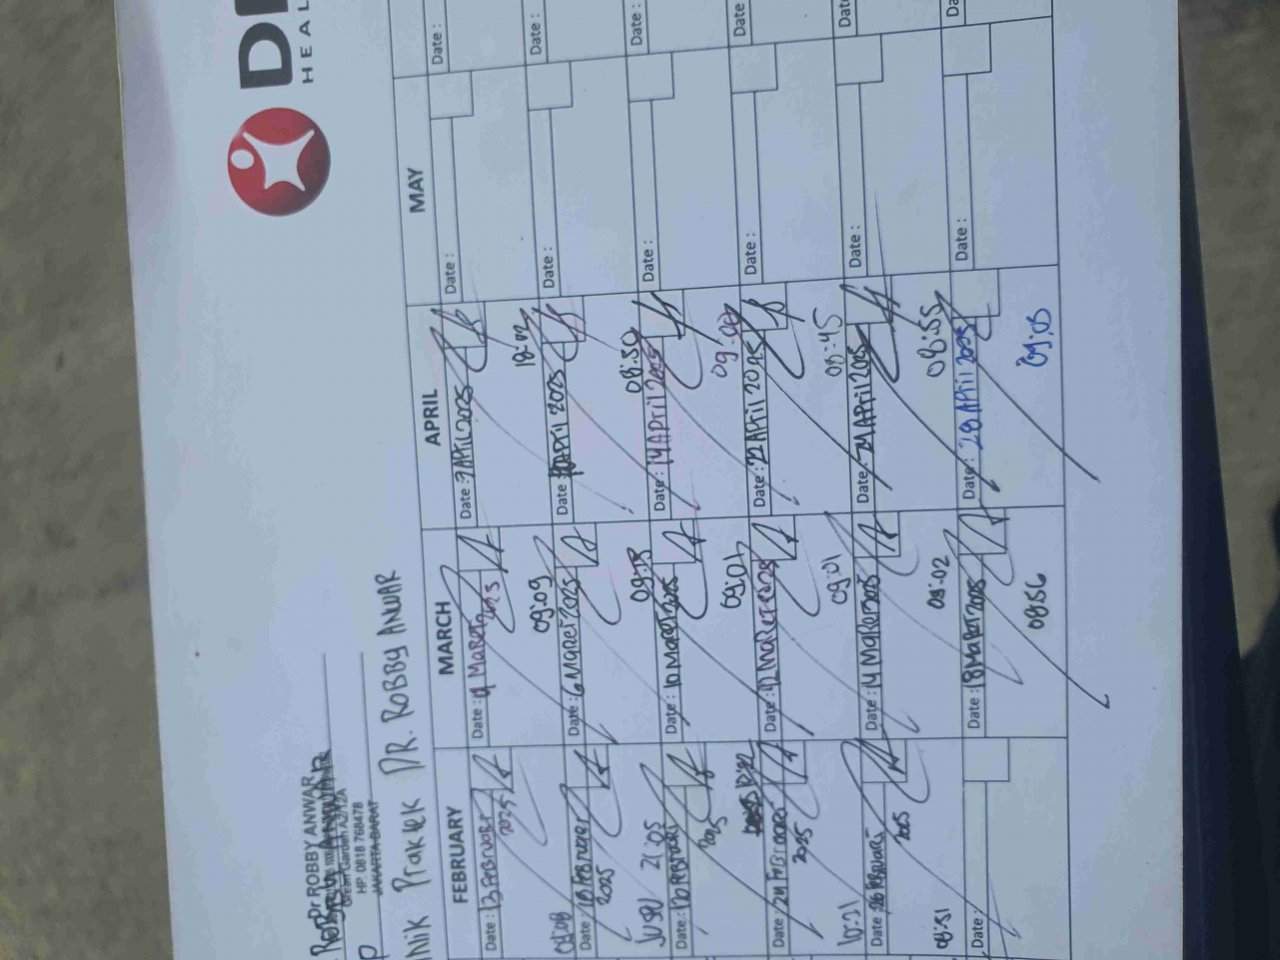 HEAL
Dr ROBBY ANWAR
HP. 0818 768478
JAKARTA BARAT
Prakek DR. ROBBY ANWAR
FEBRUARY MARCH APRIL MAY
Date : 13 Februari 2025
Date : 4 Maret 2025
Date : 7 APril 2025
Date :
Date :
09:08 09:09 18:02
Date : 18 Februari 2025
Date : 6 Maret 2025
Date : APril 2025
Date :
Date :
21:05 09:13 08:50
Date : 20 Februari 2025
Date : 10 Maret 2025
Date : 14 APril 2025
Date :
Date :
09:01
Date : 24 Februari 2025
Date : 12 Maret 2025
Date : 22 APril 2025
Date :
Date
10:21 09:01 08:45
Date : 26 Februari 2025
Date : 14 Maret 2025
Date : 24 APril 2025
Date :
08:51 09:02 08:55
Date :
Date : 18 Maret 2025
Date : 28 APril 2025
Date :
08:56 09:05